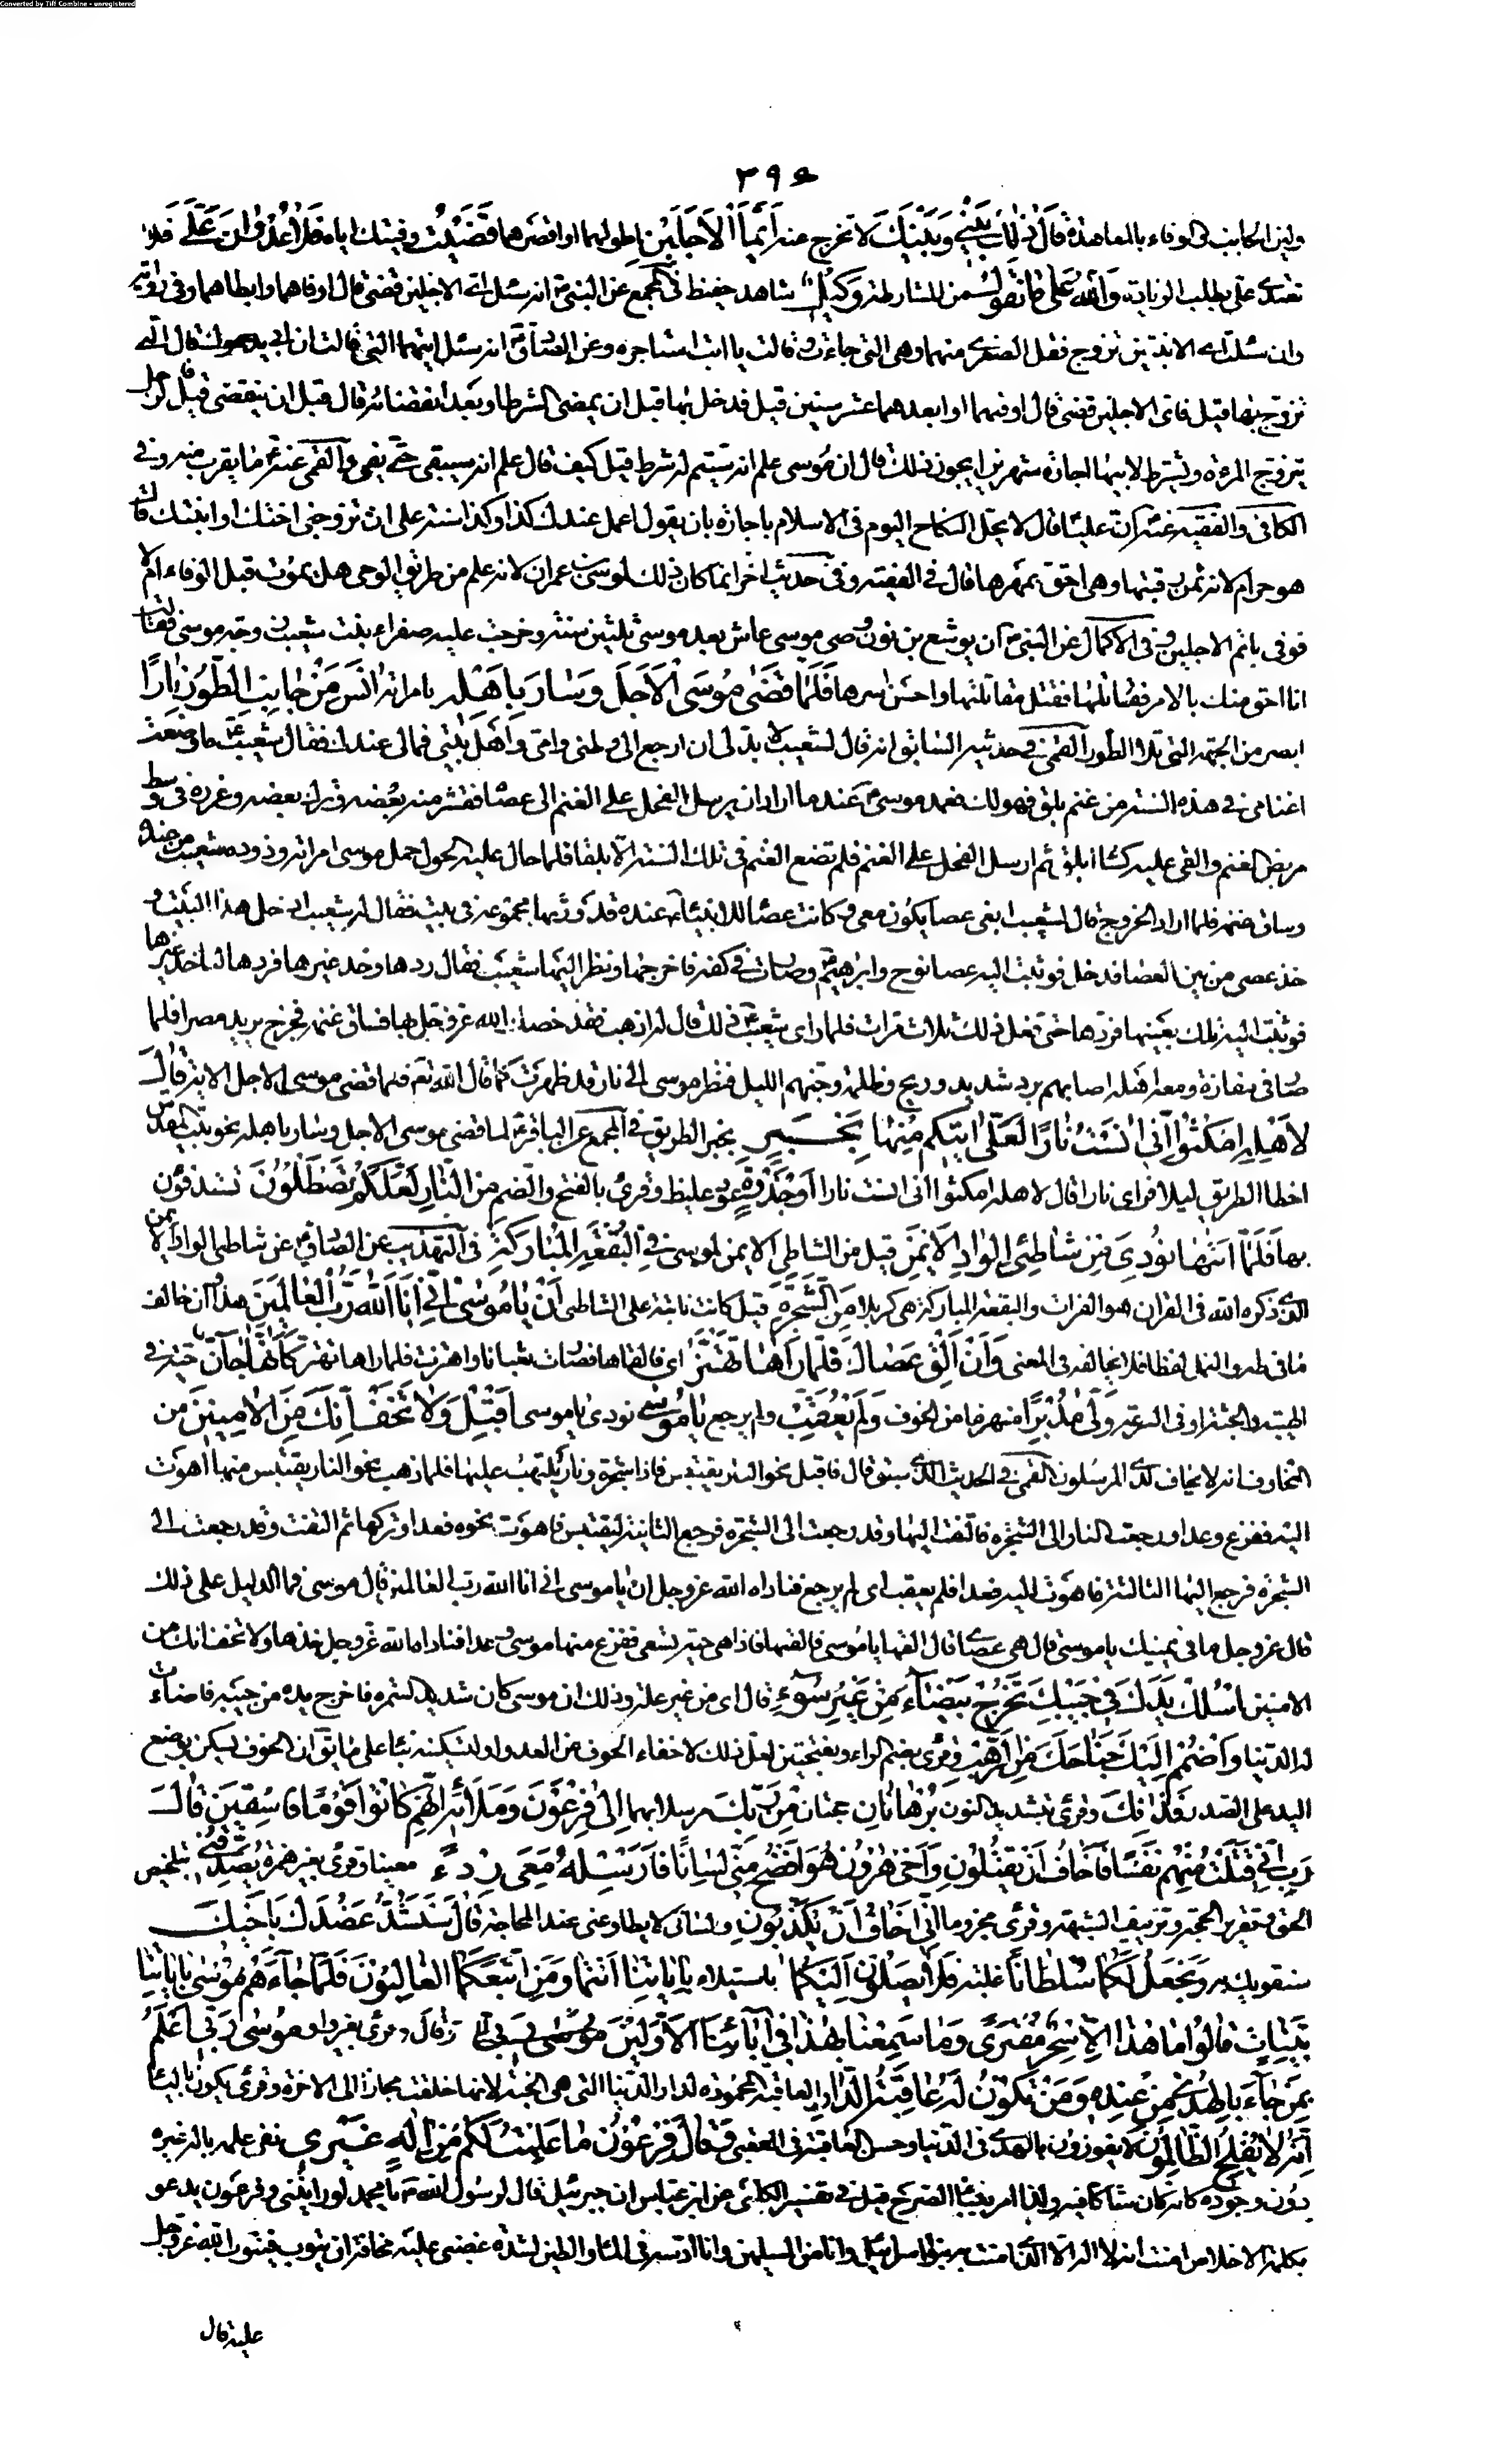 Converted by Tiff Combine - unregistered
٣٩٤
ولين الجانب في الوفاء بالمعاهدة قَالَ ذٰلِكَ بَيْنِي وَبَيْنَكَ لا نخرج عنه أَيَّمَا الْأَجَلَيْنِ اطولهما او اقصرهما قَضَيْتُ وفيتك اياه فَلَا عُدْوَانَ عَلَيَّ فلا
تعتدى على بطلب الزيادة وَاللّٰهُ عَلَىٰ مَا نَقُولُ من المشارطة وَكِيلٌ شاهد حفيظ في المجمع عن النبي ص انه سئل اي الاجلين قضى قال اوفاهما وابطاهما وفي رواية
وان سئلت اي الابنتين تزوج فقل الصغرى منهما وهي التي جاءت وقالت يا ابت استاجره وعن الصادق ع انه سئل ايتهما التي قالت ان ابي يدعوك قال التي
تزوج بها قيل فاي الاجلين قضى قال اوفيهما او ابعدهما عشر سنين قيل فدخل بها قبل ان يمضى الشرط او بعد انقضائه قال قبل ان ينقضى قيل له فالرجل
يتزوج المرءة ويشترط لابيها اجارة شهرين ايجوز ذلك قال ان موسى علم انه سيتم له شرطه قيل كيف قال علم انه سيبقى حتى يفى والقمي عنه ع ما يقرب منه وفي
الكافي والفقيه عنه ع ان عليا ع قال لا يحل النكاح اليوم في الاسلام باجارة بان يقول اعمل عندك كذا وكذا سنة على ان تزوجني اختك او ابنتك قال
هو حرام لانه ثمن رقبتها وهي احق بمهرها قال في الفقيه وفي حديث اخر انما كان ذلك لموسى بن عمران لانه علم من طريق الوحي هل يموت قبل الوفاء ام لا
فوفى باتم الاجلين وفي الاكمال عن النبي ص ان يوشع بن نون وصي موسى عاش بعد موسى ثلثين سنة وخرجت عليه صفراء بنت شعيب زوجة موسى فقالت
انا احق منك بالامر فقاتلها فقتل مقاتليها واحسن اسرها فَلَمَّا قَضَىٰ مُوسَى الْأَجَلَ وَسَارَ بِأَهْلِهِ بامراته اٰنَسَ مِنْ جَانِبِ الطُّورِ نَارًا
ابصر من الجهة التي تلى الطور القمي في حديثه السابق انه قال لشعيب لا بد لي ان ارجع الى وطنى وامى واهل بيتى فمالى عندك فقال شعيب ع ما وضعت
اغنامى في هذه السنة من غنم بلق فهو لك فعمد موسى ع عند ما اراد ان يرسل الفحل على الغنم الى عصا فقشر منه بعضه وترك بعضه وغرزه في وسط
مربض الغنم والقى عليه كساء ابلق ثم ارسل الفحل على الغنم فلم تضع الغنم في تلك السنة الا بلقا فلما حال عليه الحول حمل موسى امراته وزوده شعيب من عنده
وساق غنمه فلما اراد الخروج قال لشعيب ابغى عصا يكون معي وكانت عصا الانبياء عنده قد ورثها مجموعة في بيت فقال له شعيب ادخل هذا البيت و
خذ عصى من بين العصا فدخل فوثبت اليه عصا نوح وابرهيم ع وصارت في كفه فاخرجها ونظر اليها شعيب فقال ردها وخذ غيرها فردها لياخذ غيرها
فوثبت اليه تلك بعينها فردها حتى فعل ذلك ثلاث مرات فلما راى شعيب ع ذلك قال له اذهب فقد خصك الله عز وجل بها فساق غنمه فخرج يريد مصر فلما
صار في مفازة ومعه اهله اصابهم برد شديد وريح وظلمة وجنهم الليل فنظر موسى الى نار قد ظهرت كما قال الله تع فلما قضى موسى الاجل الاية قَالَ
لِأَهْلِهِ امْكُثُوا إِنِّي اٰنَسْتُ نَارًا لَعَلِّي اٰتِيكُمْ مِنْهَا بِخَبَرٍ بخبر الطريق في المجمع عن الباقر ع لما قضى موسى الاجل وسار باهله نحو بيت المقدس
اخطا الطريق ليلا فراى نارا قال لاهله امكثوا انى انست نارا أَوْ جَذْوَةٍ عود غليظ وقرئ بالفتح والضم مِنَ النَّارِ لَعَلَّكُمْ تَصْطَلُونَ تستدفؤن
بها فَلَمَّا أَتٰىهَا نُودِيَ مِنْ شَاطِئِ الْوَادِ الْأَيْمَنِ قيل من الشاطى الايمن لموسى فِي الْبُقْعَةِ الْمُبَارَكَةِ في التهذيب عن الصادق ع شاطى الواد الايمن
الذي ذكره الله في القران هو الفرات والبقعة المباركة هي كربلا مِنَ الشَّجَرَةِ قيل كانت نابتة على الشاطى أَنْ يَا مُوسَىٰ إِنِّي أَنَا اللّٰهُ رَبُّ الْعَالَمِينَ هذا وان خالف
ما في طه والنمل لفظا فلا يخالفه في المعنى وَأَنْ أَلْقِ عَصَاكَ فَلَمَّا رَاٰهَا تَهْتَزُّ اي فالقاها فصارت ثعبانا واهتزت فلما راها تهتز كَأَنَّهَا جَانٌّ حية في
الهيئة والجثة او في السرعة وَلَّىٰ مُدْبِرًا منهزما من الخوف وَلَمْ يُعَقِّبْ ولم يرجع يَا مُوسَىٰ نودى يا موسى أَقْبِلْ وَلَا تَخَفْ إِنَّكَ مِنَ الْاٰمِنِينَ من
المخاوف انه لا يخاف لدي المرسلون القمي في الحديث الذي سبق قال فاقبل نحو النار يقتبس فاذا شجرة ونار تلتهب عليها فلما ذهب نحو النار يقتبس منها اهوت
اليه ففزع وعدا ورجعت النار الى الشجرة فالتفت اليها وقد رجعت الى الشجرة فرجع الثانية ليقتبس فاهوت نحوه فعدا وتركها ثم التفت وقد رجعت الى
الشجرة فرجع اليها الثالثة فاهوت اليه فعدا فلم يعقب اى لم يرجع فناداه الله عز وجل ان يا موسى انى انا الله رب العالمين قال موسى فما الدليل على ذلك
قال عز وجل ما في يمينك يا موسى قال هي عصاي قال القها يا موسى فالقيها فاذا هى حية تسعى ففزع منها موسى وعدا فناداه الله عز وجل خذها ولا تخف انك من
الامنين اسْلُكْ يَدَكَ فِي جَيْبِكَ تَخْرُجْ بَيْضَاءَ مِنْ غَيْرِ سُوءٍ قال اى من غير علة وذلك ان موسى كان شديد السمرة فاخرج يده من جيبه فاضاءت
له الدنيا وَاضْمُمْ إِلَيْكَ جَنَاحَكَ مِنَ الرَّهْبِ وقرئ بضم الراء وبفتحتين لعل ذلك لاخفاء الخوف من العدو او لتسكينه بناء على ما يقٰ ان الخوف يسكن بوضع
اليد على الصدر فَذَانِكَ وقرئ بتشديد النون بُرْهَانَانِ حجتان مِنْ رَبِّكَ مرسلا بهما إِلَىٰ فِرْعَوْنَ وَمَلَائِهِ إِنَّهُمْ كَانُوا قَوْمًا فَاسِقِينَ قَالَ
رَبِّ إِنِّي قَتَلْتُ مِنْهُمْ نَفْسًا فَأَخَافُ أَنْ يَقْتُلُونِ وَأَخِي هٰرُونُ هُوَ أَفْصَحُ مِنِّي لِسَانًا فَأَرْسِلْهُ مَعِيَ رِدْءًا معينا وقرئ بغير همزة يُصَدِّقُنِي بتلخيص
الحق وتقرير الحجة وتزييف الشبهة وقرئ مجزوما إِنِّي أَخَافُ أَنْ يُكَذِّبُونِ ولسانى لا يطاوعنى عند المحاجة قَالَ سَنَشُدُّ عَضُدَكَ بِأَخِيكَ
سنقويك به وَنَجْعَلُ لَكُمَا سُلْطَانًا غلبة فَلَا يَصِلُونَ إِلَيْكُمَا باستيلاء بِاٰيَاتِنَا أَنْتُمَا وَمَنِ اتَّبَعَكُمَا الْغَالِبُونَ فَلَمَّا جَاءَهُمْ مُوسَىٰ بِاٰيَاتِنَا
بَيِّنَاتٍ قَالُوا مَا هٰذَا إِلَّا سِحْرٌ مُفْتَرًى وَمَا سَمِعْنَا بِهٰذَا فِي اٰبَائِنَا الْأَوَّلِينَ وَقَالَ وقرئ بغير واو مُوسَىٰ رَبِّي أَعْلَمُ
بِمَنْ جَاءَ بِالْهُدَىٰ مِنْ عِنْدِهِ وَمَنْ تَكُونُ لَهُ عَاقِبَةُ الدَّارِ العاقبة المحمودة لدار الدنيا التي هي الجنة لانها خلقت مجازا الى الاخرة وقرئ يكون بالياء
إِنَّهُ لَا يُفْلِحُ الظَّالِمُونَ لا يفوزون بالهدى في الدنيا وحسن العاقبة في العقبى وَقَالَ فِرْعَوْنُ مَا عَلِمْتُ لَكُمْ مِنْ إِلٰهٍ غَيْرِي نفى علمه باله غيره
دون وجوده كانه كان شاكا فيه ولذا امر ببناء الصرح قيل في تفسير الكلبى عن ابن عباس ان جبرئيل قال لرسول الله ص يا محمد لو رايتنى وفرعون يدعو
بكلمة الاخلاص امنت انه لا اله الا الذي امنت به بنو اسرائيل وانا من المسلمين وانا ادسه في الماء والطين لشدة غضبى عليه مخافة ان يتوب فيتوب الله عز وجل
عليه قال